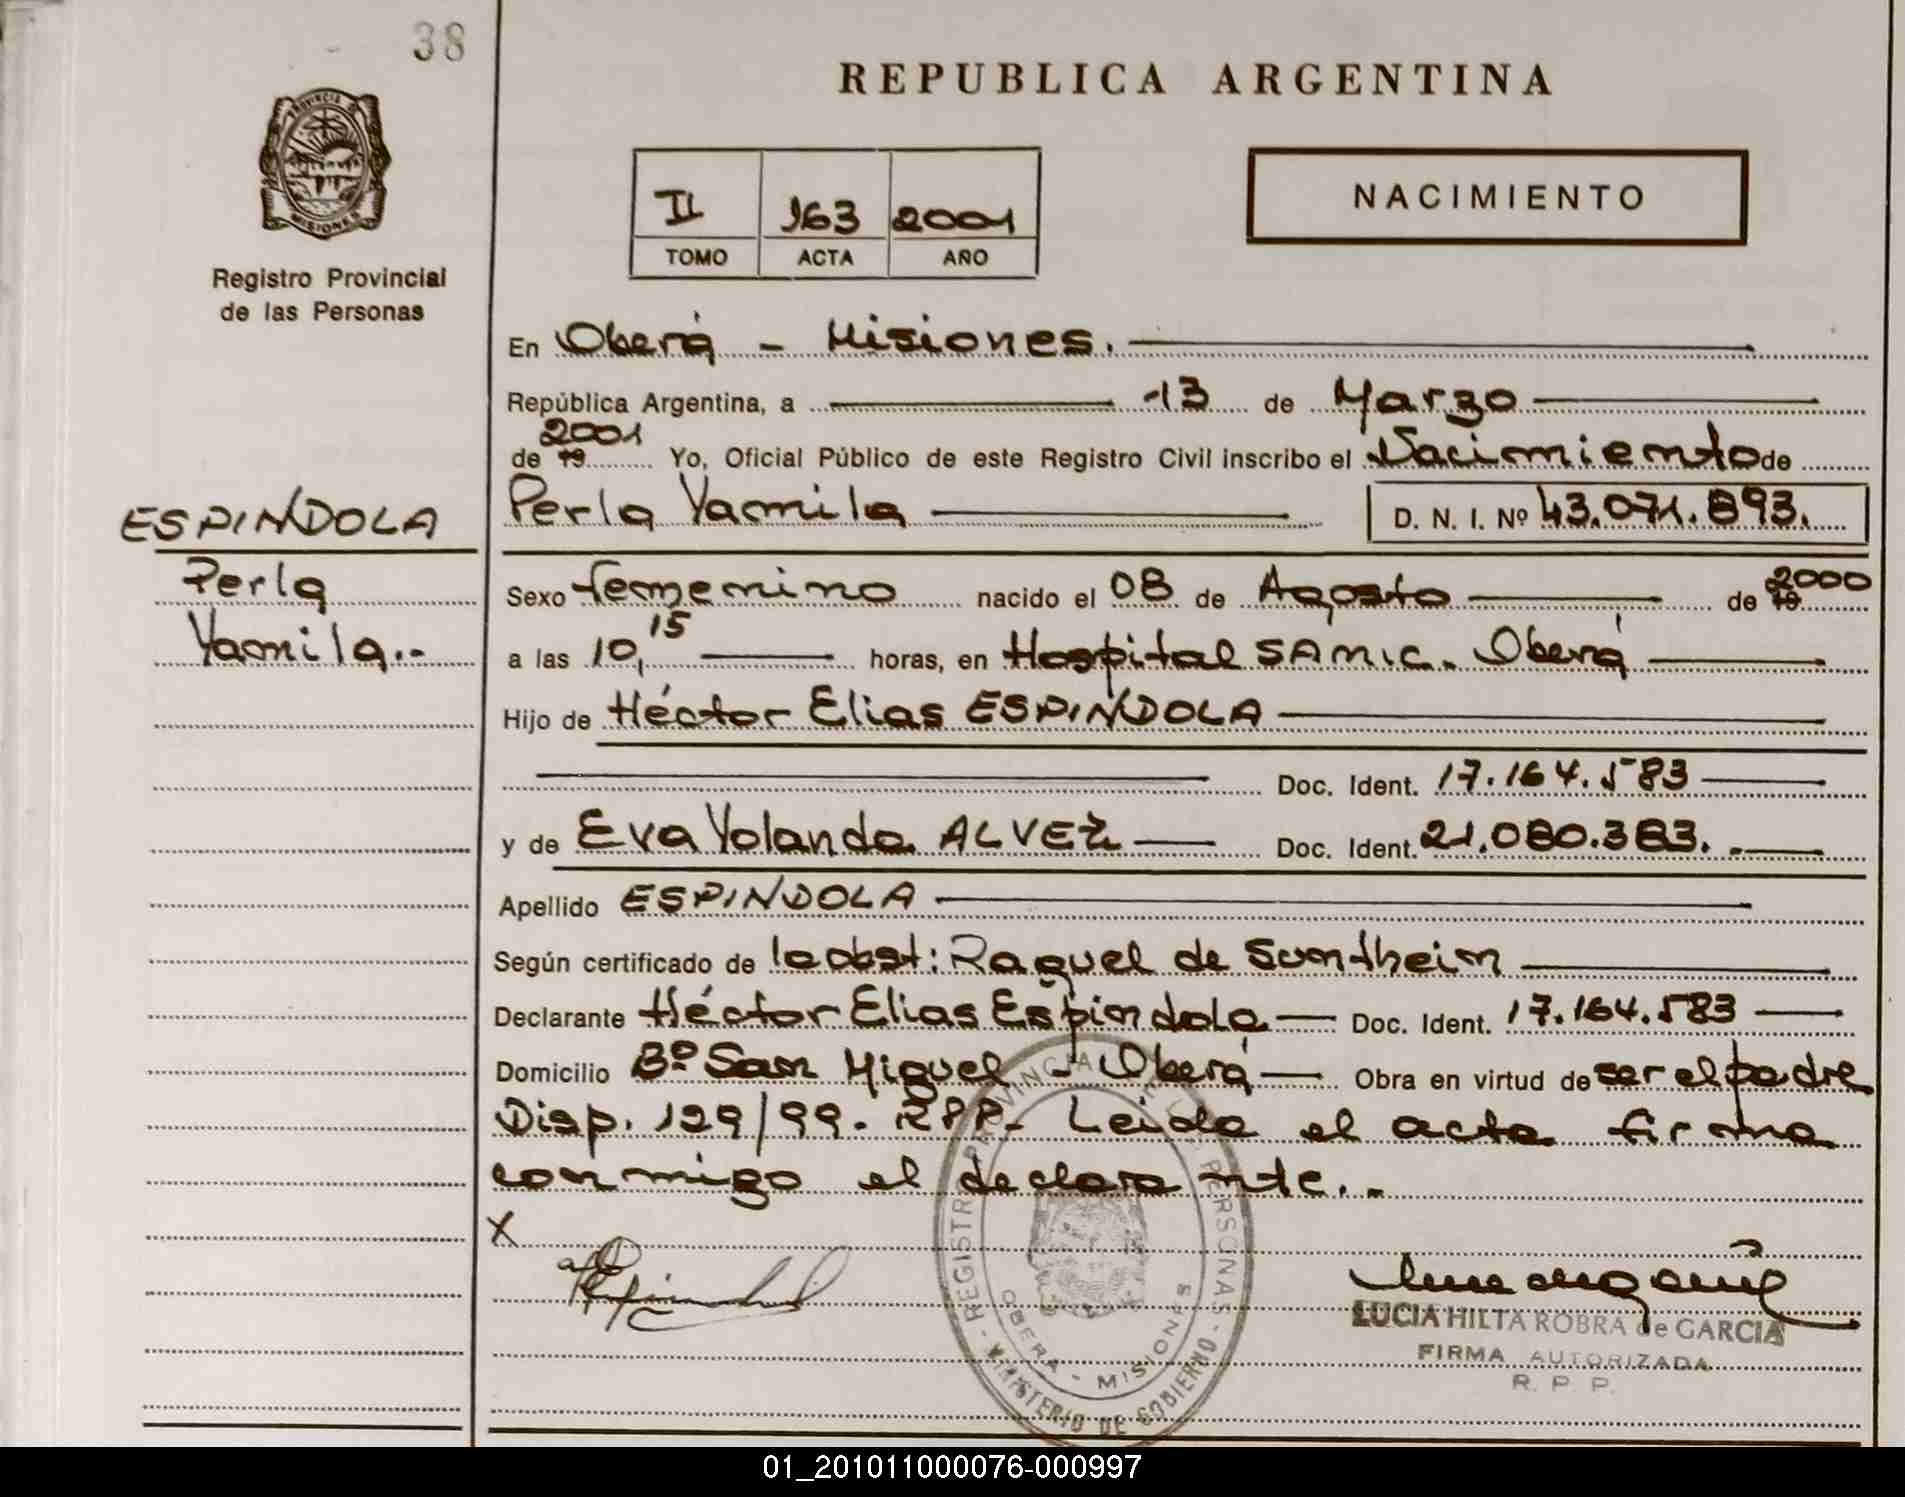 38
REPUBLICA ARGENTINA
PROVINCIA DE
MISIONES
Registro Provincial
de las Personas
II 163 2001
TOMO ACTA AÑO
NACIMIENTO
En Oberá - Misiones.
República Argentina, a 13 de Marzo
2001
de 19 Yo, Oficial Público de este Registro Civil inscribo el Nacimiento de
ESPINDOLA
Perla Yamila D. N. I. Nº 43.071.893.
Perla
Yamila.-
Sexo femenino nacido el 08 de Agosto de 19 2000
a las 10,15 horas, en Hospital SAMIC. Oberá
Hijo de Héctor Elias ESPINDOLA
Doc. Ident. 17.164.583
y de Eva Yolanda ALVEZ Doc. Ident. 21.080.383.
Apellido ESPINDOLA
Según certificado de la obst: Raquel de Suntheim
Declarante Héctor Elias Espindola Doc. Ident. 17.164.583
Domicilio Bº San Miguel - Oberá Obra en virtud de ser el padre
Disp. 129/99. RPP- Leida el acta firma
conmigo el declarante.-
X
REGISTRO PROVINCIAL DE LAS PERSONAS
OBERA - MISIONES
MINISTERIO DE GOBIERNO
LUCIA HILTA ROBRA de GARCIA
FIRMA AUTORIZADA
R. P. P.
01_201011000076-000997